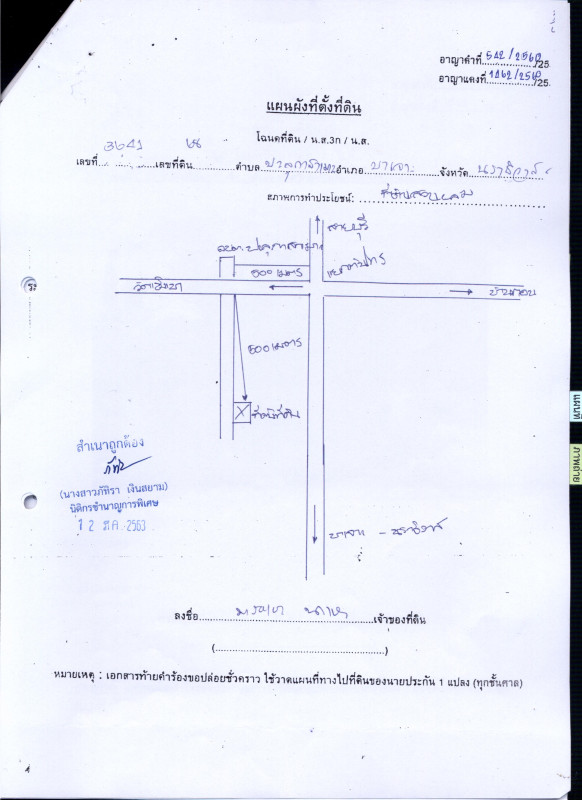 อาญาดำที่ 542/2560 /25
อาญาแดงที่ 1462/2560 /25
แผนผังที่ตั้งที่ดิน
โฉนดที่ดิน / น.ส.3ก / น.ส.
เลขที่ 3641 เลขที่ดิน ตำบล ปะลุกาสาเมาะ อำเภอ บาเจาะ จังหวัด นราธิวาส
สภาพการทำประโยชน์:
สายบุรี
อบต.ปะลุกาสาเมาะ
500 เมตร
บ้านทอน
500 เมตร
ที่ดิน
สำเนาถูกต้อง
(นางสาวภัทิรา เงินสยาม)
นิติกรชำนาญการพิเศษ
12 มี.ค. 2563
บาเจาะ - นราธิวาส
ลงชื่อ เจ้าของที่ดิน
( )
หมายเหตุ : เอกสารท้ายคำร้องขอปล่อยชั่วคราว ใช้วาดแผนที่ทางไปที่ดินของนายประกัน 1 แปลง (ทุกชั้นศาล)
แผนที่
ภาพถ่าย